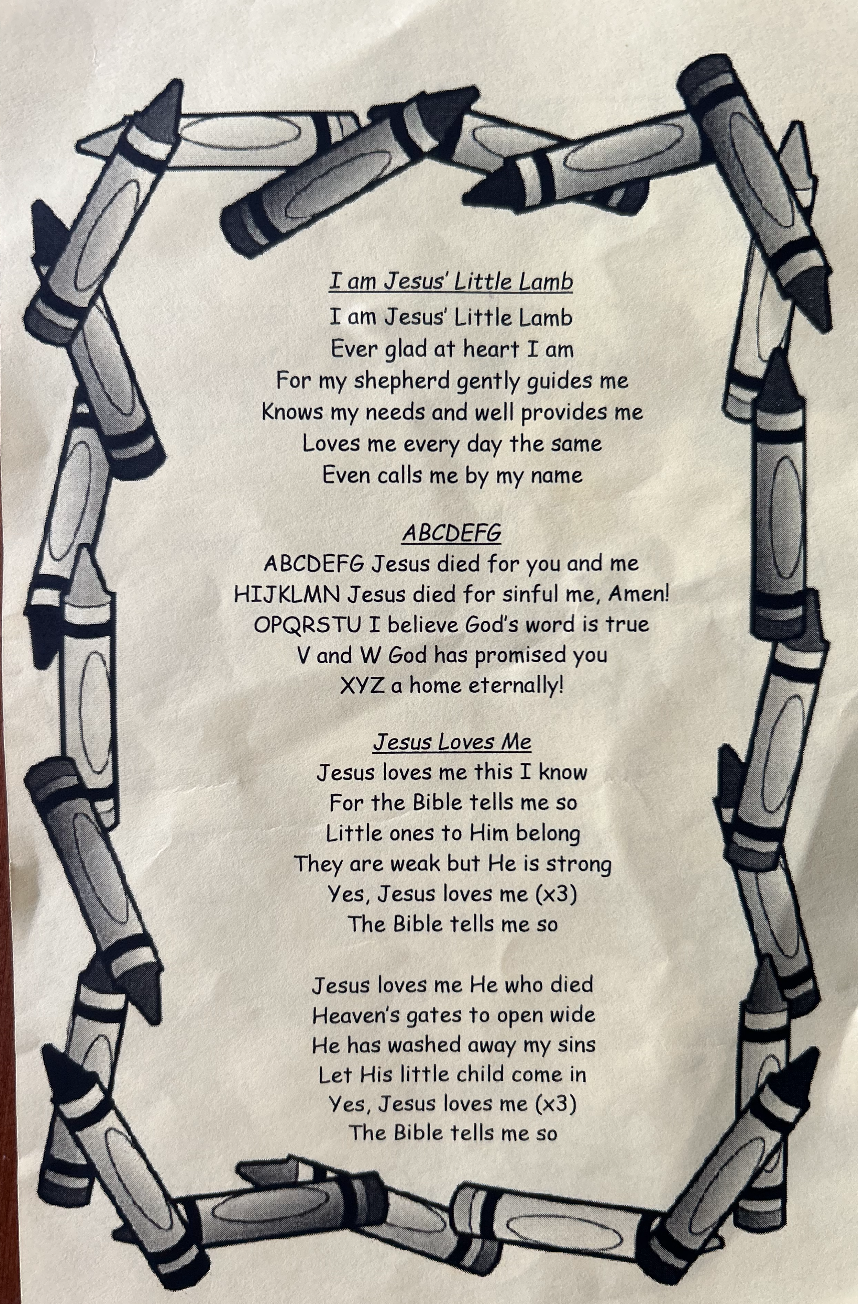 I am Jesus' Little Lamb
I am Jesus' Little Lamb
Ever glad at heart I am
For my shepherd gently guides me
Knows my needs and well provides me
Loves me every day the same
Even calls me by my name
ABCDEFG
ABCDEFG Jesus died for you and me
HIJKLMN Jesus died for sinful me, Amen!
OPQRSTU I believe God's word is true
V and W God has promised you
XYZ a home eternally!
Jesus Loves Me
Jesus loves me this I know
For the Bible tells me so
Little ones to Him belong
They are weak but He is strong
Yes, Jesus loves me (x3)
The Bible tells me so
Jesus loves me He who died
Heaven's gates to open wide
He has washed away my sins
Let His little child come in
Yes, Jesus loves me (x3)
The Bible tells me so